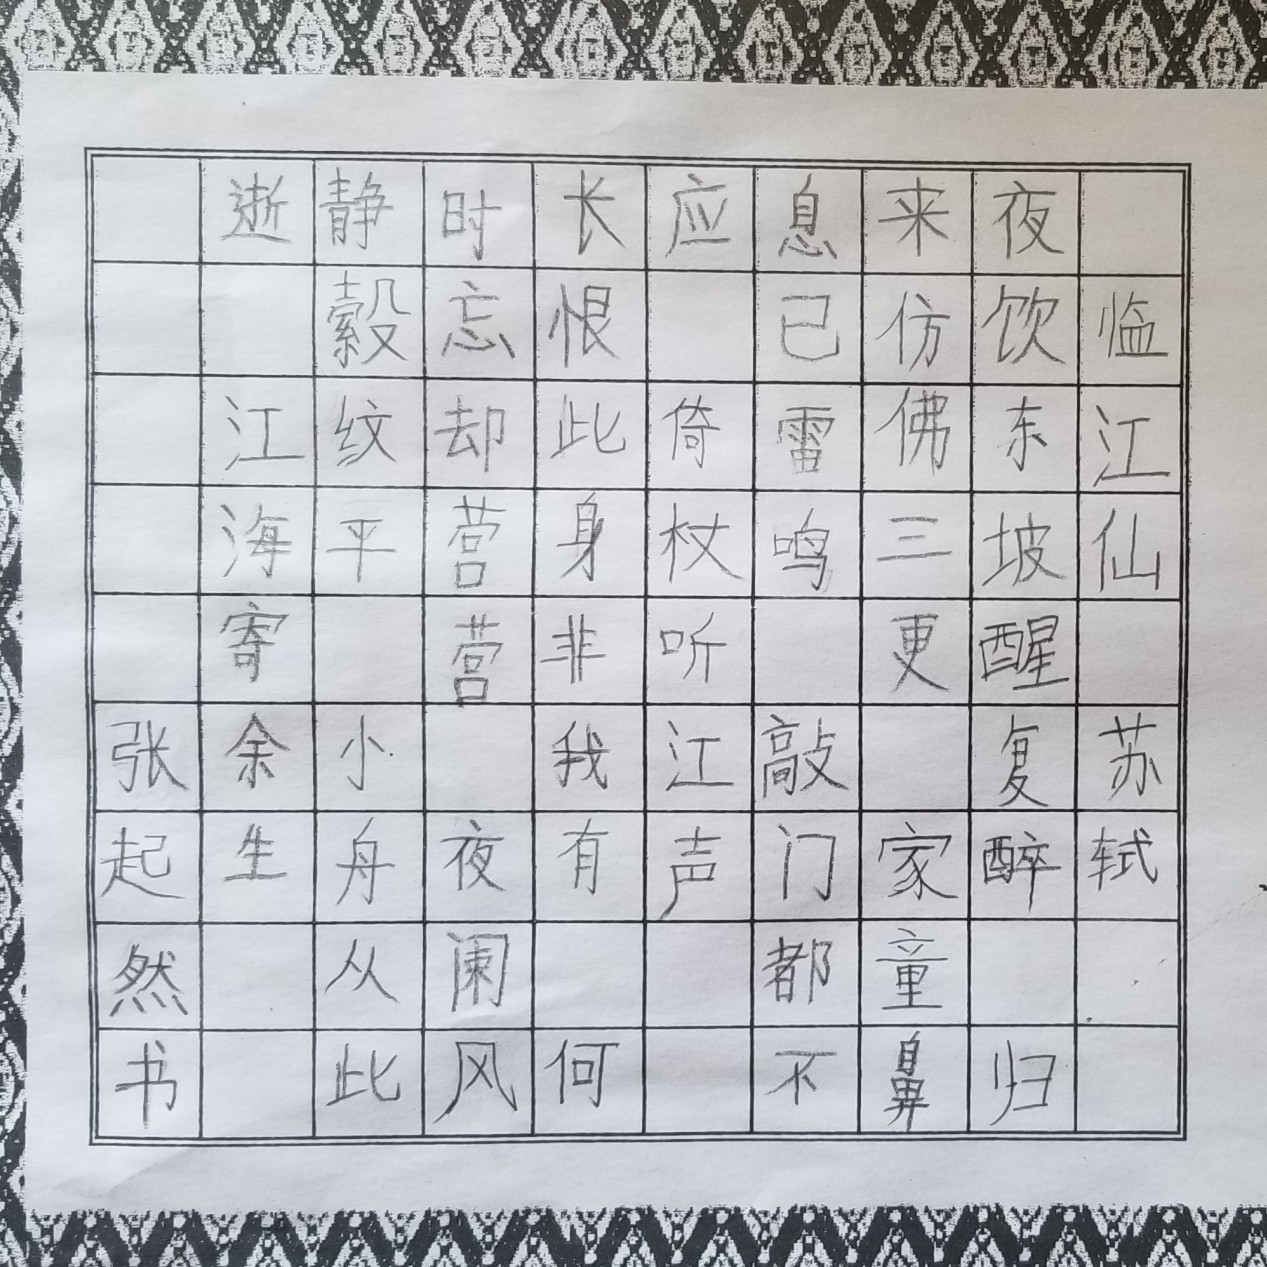 临江仙 苏轼
夜饮东坡醒复醉 归
来仿佛三更 家童鼻
息已雷鸣 敲门都不
应 倚杖听江声
长恨此身非我有 何
时忘却营营 夜阑风
静縠纹平 小舟从此
逝 江海寄余生
张起然书